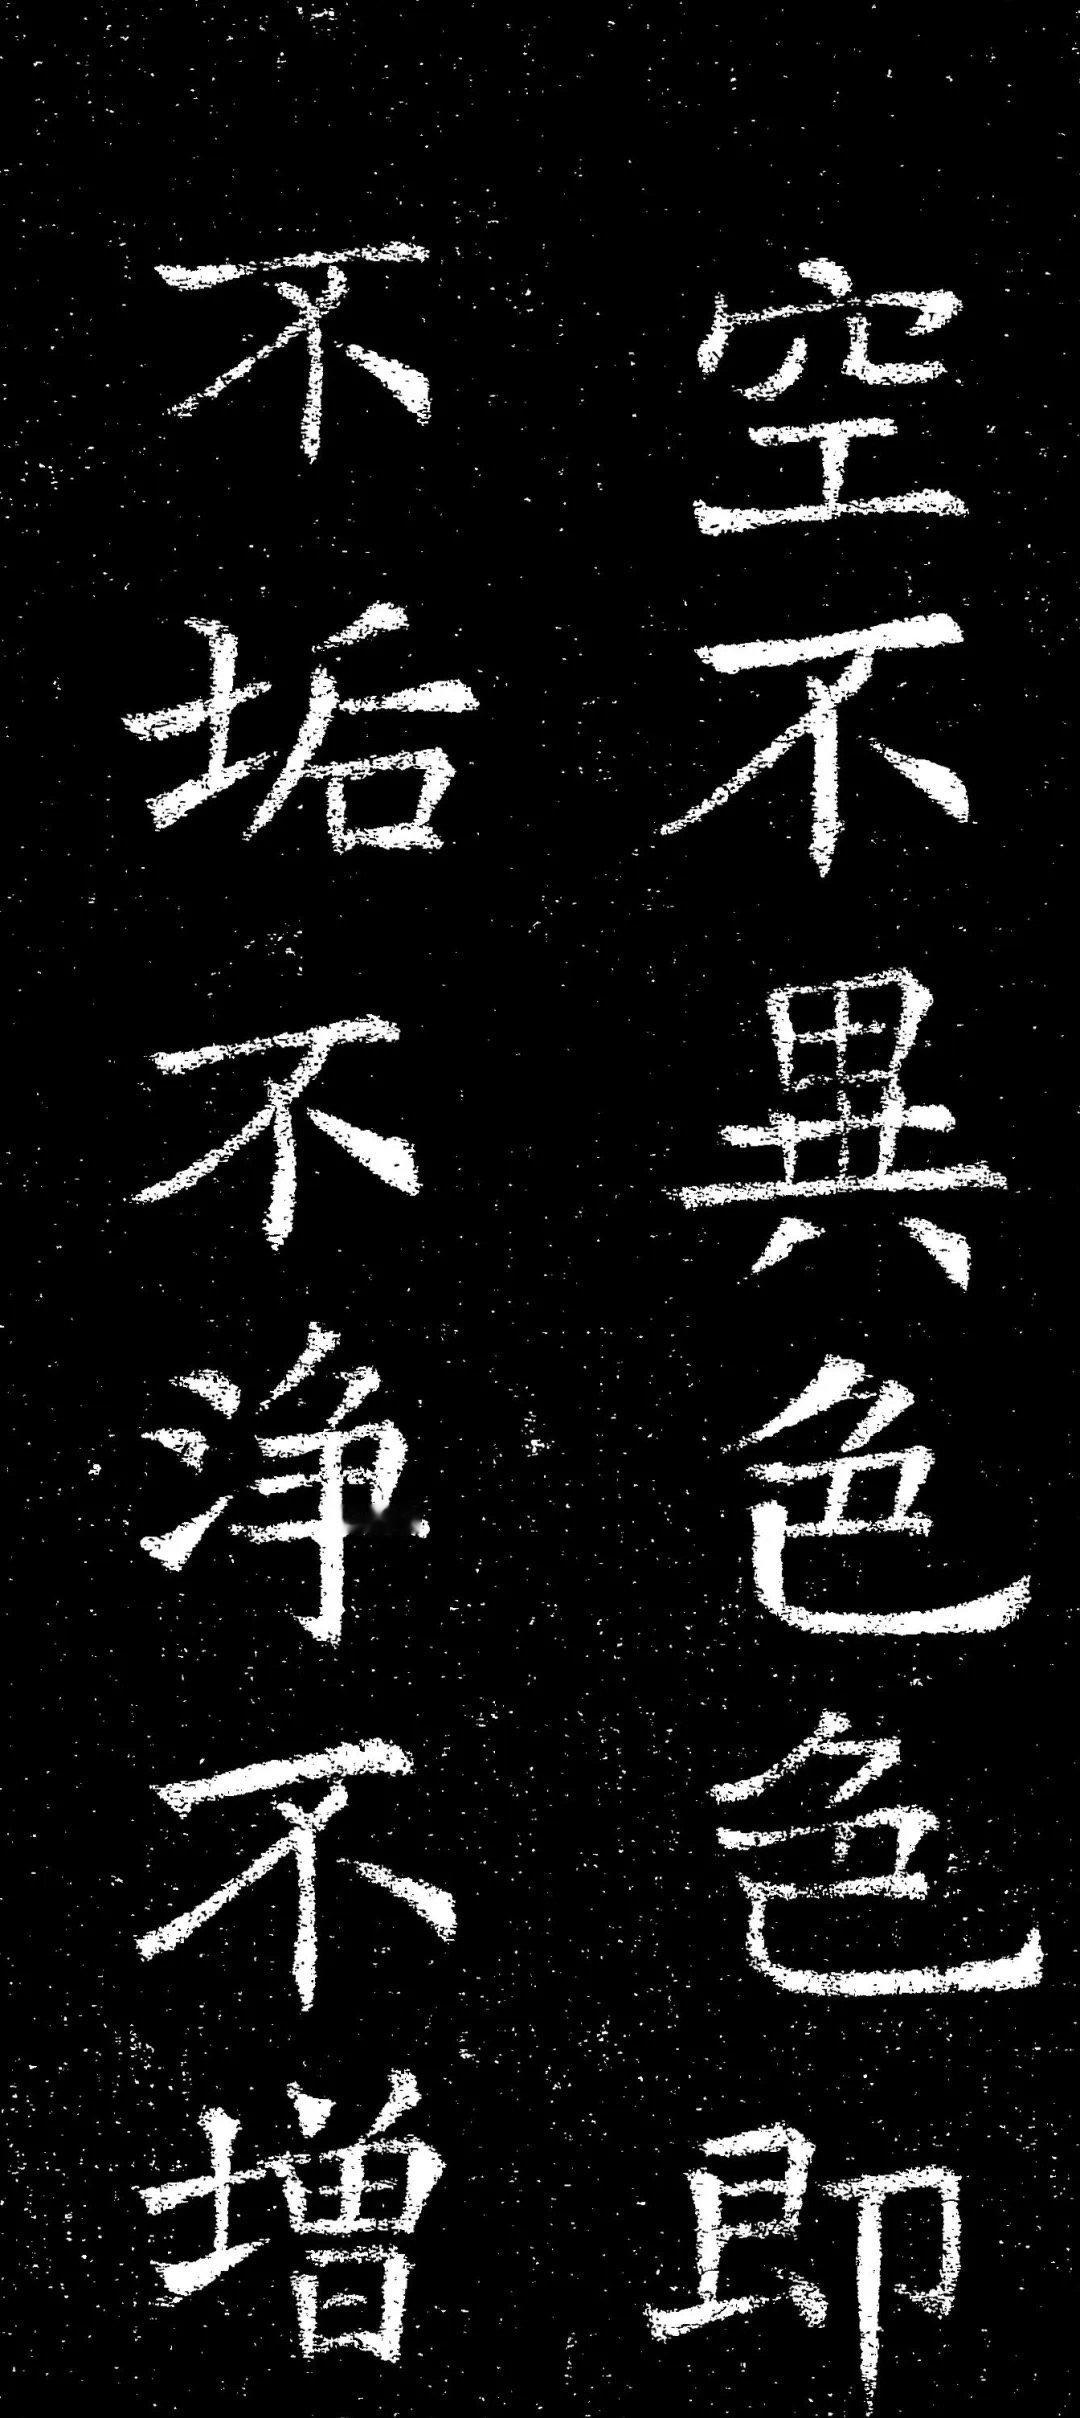 空不異色色即
不垢不浄不増